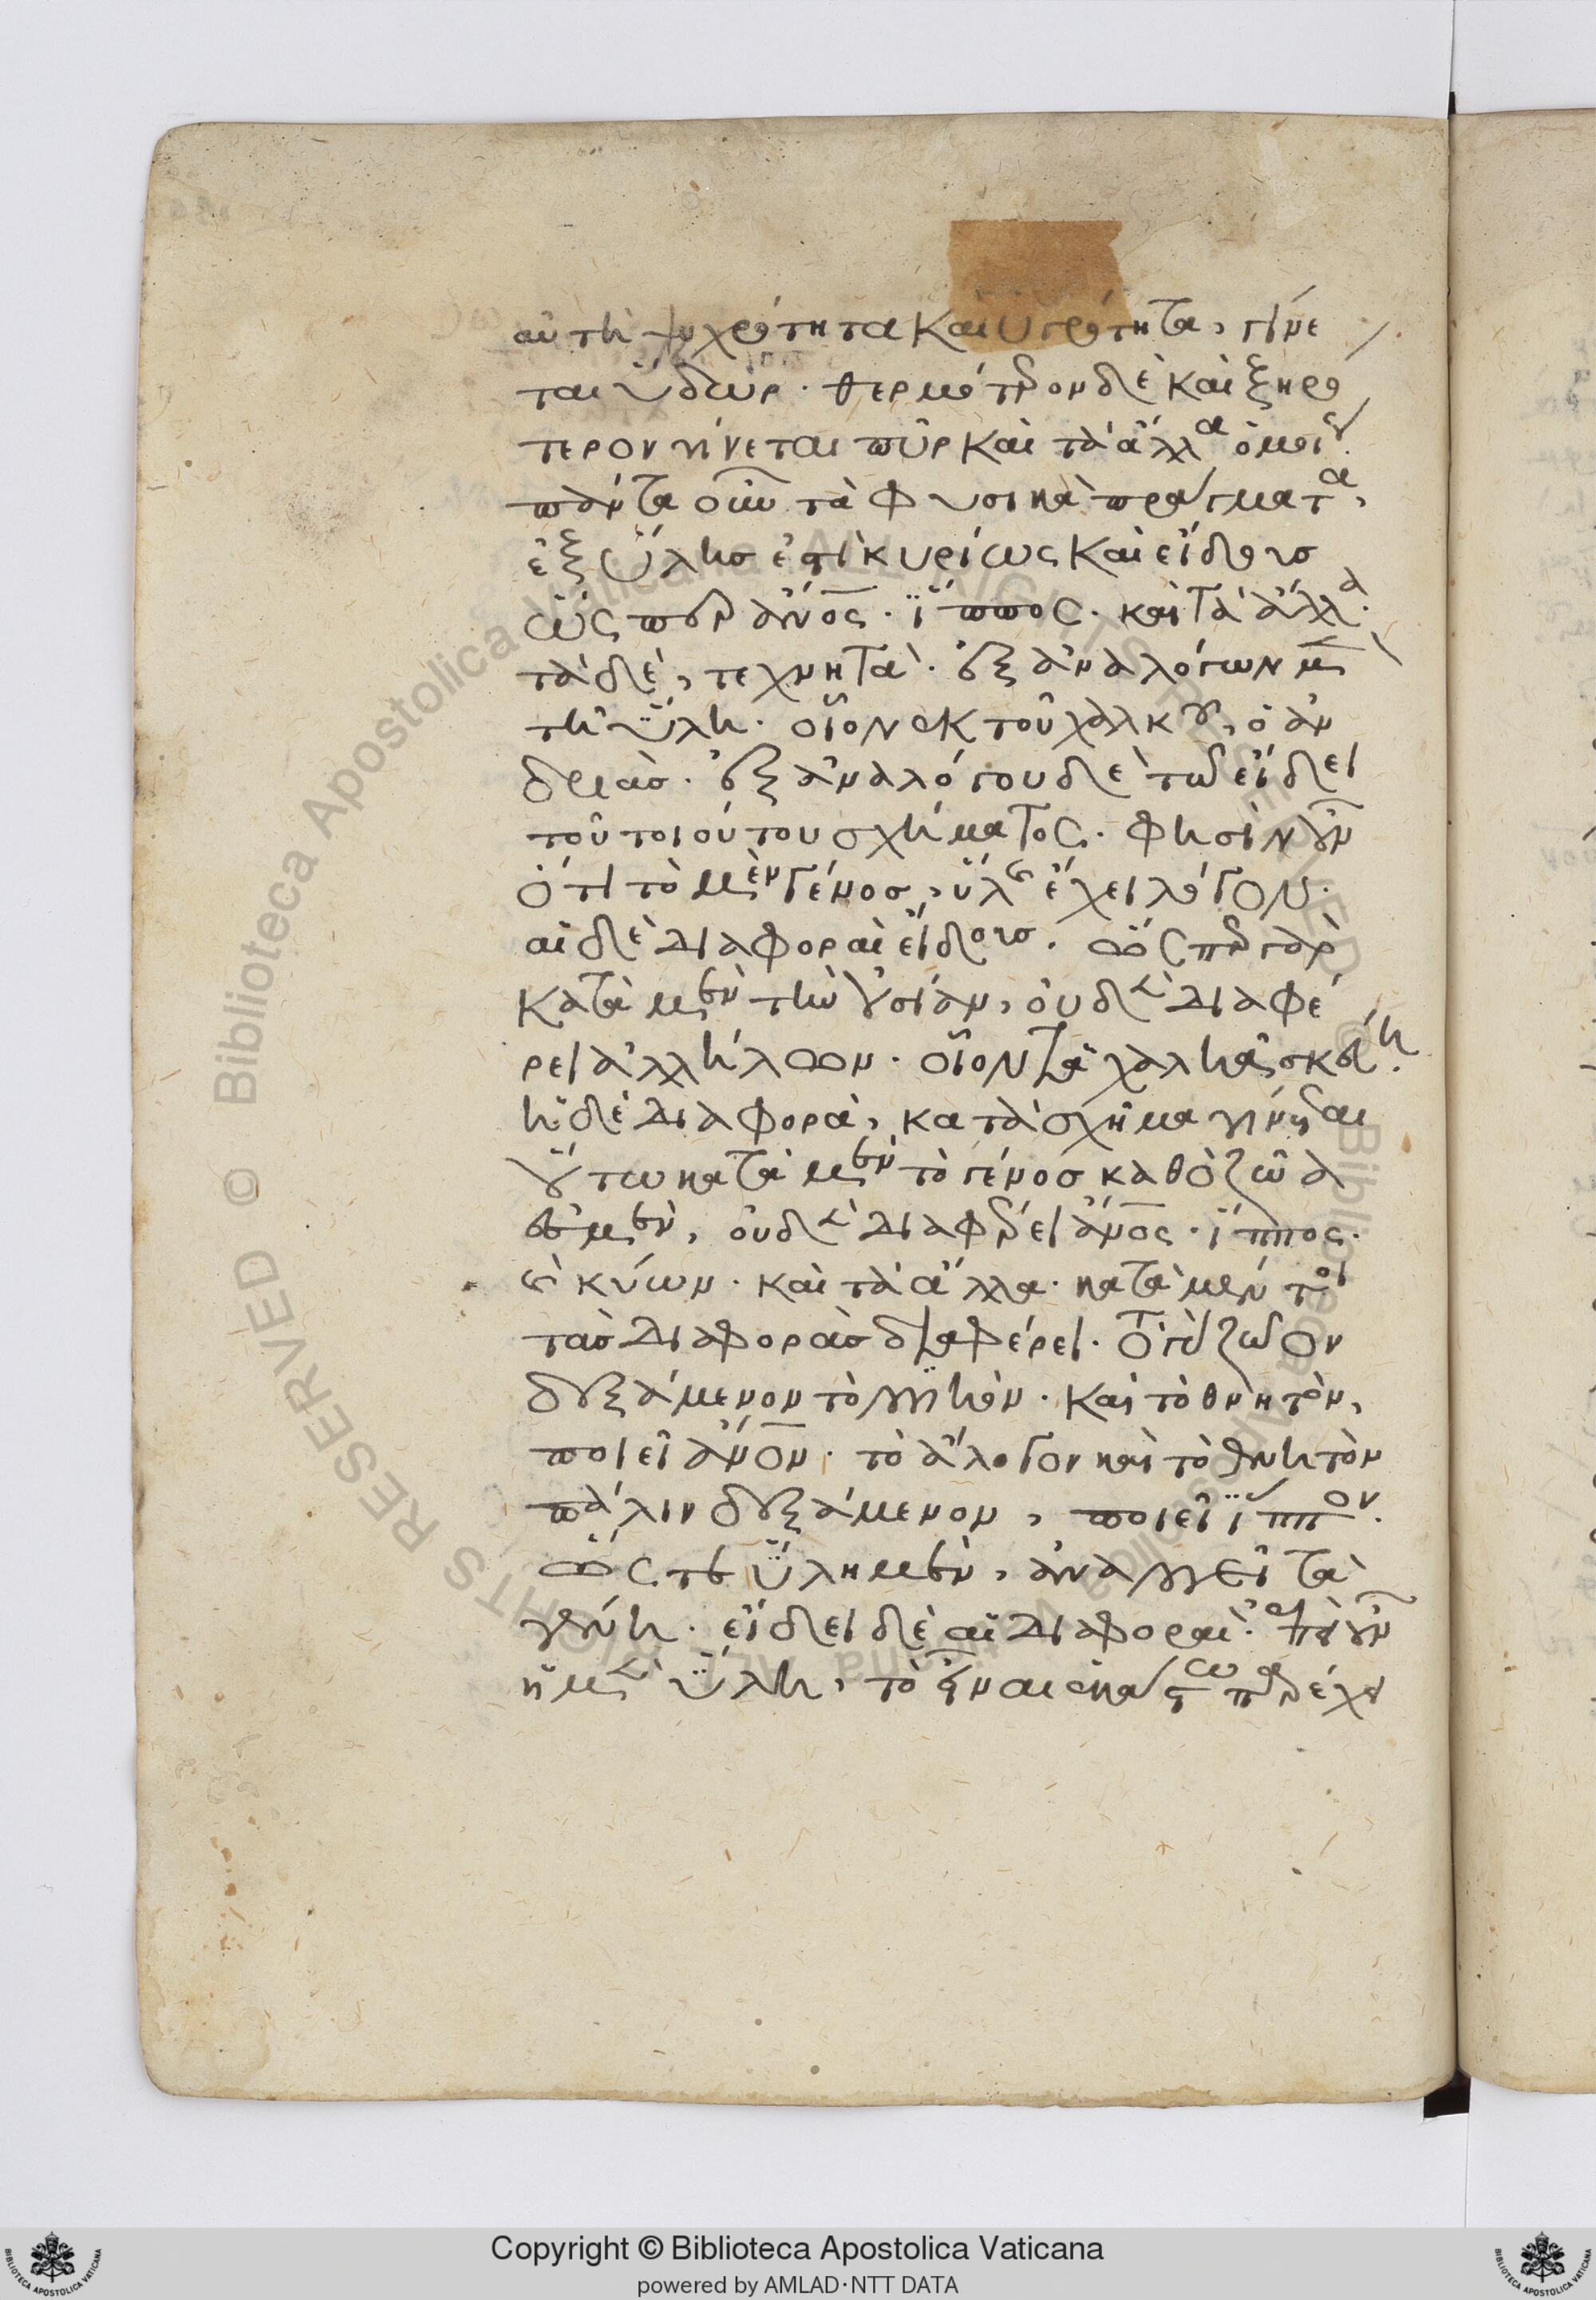 αὐτὴ ψυχρότητα καὶ ὑγρότητα, γίνε
ται ὕδωρ. θερμότερον δὲ καὶ ξηρό
τερον γίνεται πῦρ καὶ τὰ ἄλλα ὁμοί.
πάντα οὖν τὰ φυσικὰ πράγματα,
ἐξ ὕλης ἐστὶ κυρίως καὶ εἴδους
ὥς περ ἄνος. ἵππος. καὶ τὰ ἄλλα.
τὰ δὲ, τεχνητὰ. ἐξ ἀναλόγων μὲν
τῆ ὕλη. οἷον ἐκ τοῦ χαλκοῦ, ὁ ἀν
δριάς. ἐξ ἀναλόγου δὲ τῶ εἴδει
τοῦ τοιούτου σχήματος. φησὶν οὖν
ὅτι τὸ μὲν γένος, ὕλης ἔχει λόγον.
αἱ δὲ διαφοραὶ εἴδους. ὥς περ γὰρ
κατὰ μὲν τὴν οὐσίαν, οὐδὲν διαφέ
ρει ἀλλήλων. οἷον τὰ χαλκᾶ σκεύη.
ἡ δὲ διαφορὰ, κατὰ σχῆμα γίνεται
οὕτω κατὰ μὲν τὸ γένος καθὸ ζῶά
ἐσμεν, οὐδὲν διαφέρει ἄνος. ἵππος.
ἢ κύων. καὶ τὰ ἄλλα. κατὰ μέν τοι
τὰς διαφορὰς διαφέρει. ὅτι τὸ ζῶον
δεξάμενον τὸ λογικόν. καὶ τὸ θνητόν,
ποιεῖ ἄνον. τὸ ἄλογον καὶ τὸ θνητὸν
πάλιν δεξάμενον, ποιεῖ ἵππον.
ὥς τε ὕλη μὲν, ἀναλογεῖ τὰ
γένη. εἴδει δὲ αἱ διαφοραὶ. ἐπεὶ οὖν
ἡ μὲν ὕλη, τὸ εἶναι ἑκάστω παρέχει